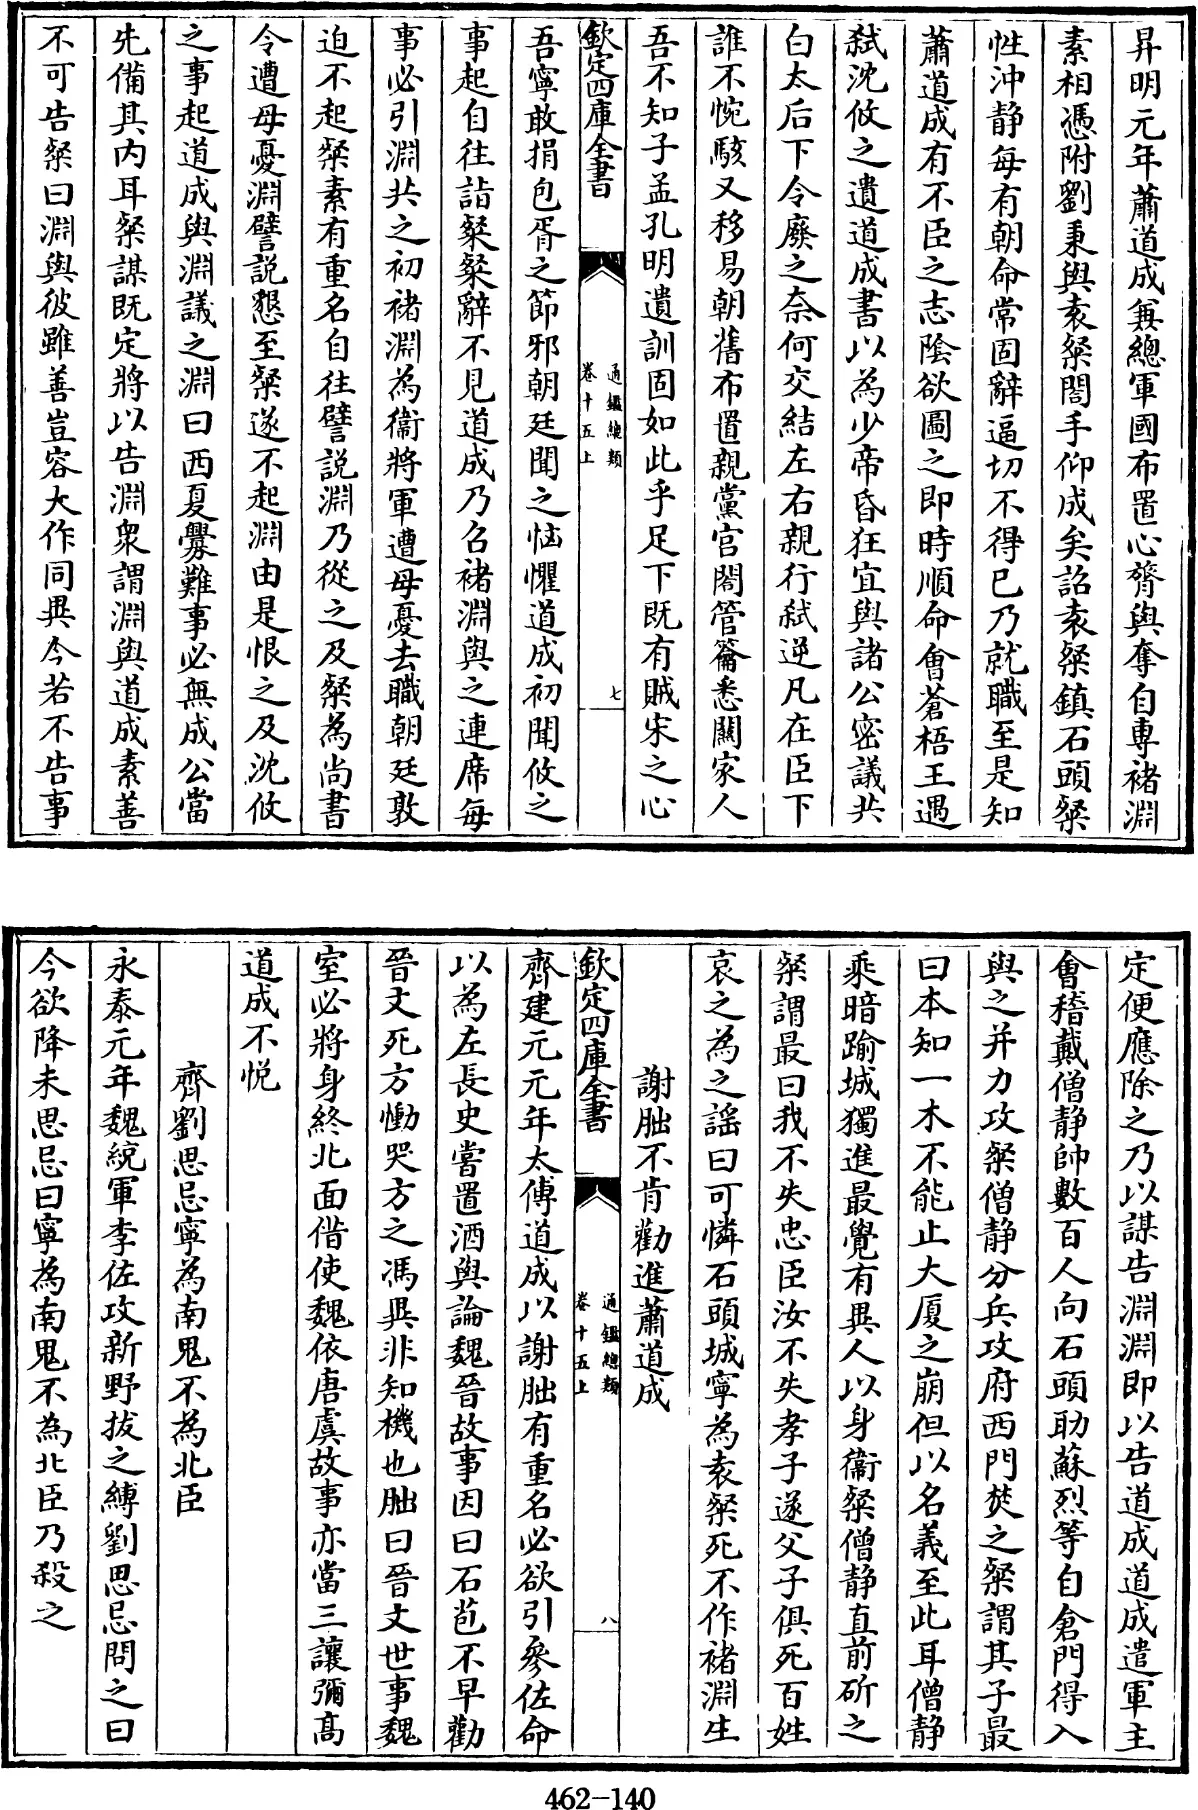 昇明元年蕭道成兼總軍國布置心膂與奪自專褚淵
素相憑附劉秉與袁粲閤手仰成矣詔袁粲鎮石頭粲
性沖静每有朝命常固辭逼切不得已乃就職至是知
蕭道成有不臣之志陰欲圖之即時順命會蒼梧王遇
弑沈攸之遺道成書以為少帝昏狂宜與諸公密議共
白太后下令廢之奈何交結左右親行弑逆凡在臣下
誰不惋駭又移易朝舊布置親黨宫閤管籥悉關家人
吾不知子孟孔明遺訓固如此乎足下既有賊宋之心
欽定四庫全書
通鑑總類
卷十五上
七
吾寧敢捐包胥之節邪朝廷聞之恼懼道成初聞攸之
事起自往詣粲粲辭不見道成乃召褚淵與之連席每
事必引淵共之初褚淵為衞將軍遭母憂去職朝廷敦
迫不起粲素有重名自往譬説淵乃從之及粲為尚書
令遭母憂淵譬説懇至粲遂不起淵由是恨之及沈攸
之事起道成與淵議之淵曰西夏釁難事必無成公當
先備其内耳粲謀既定將以告淵衆謂淵與道成素善
不可告粲曰淵與彼雖善豈容大作同異今若不告事
定便應除之乃以謀告淵淵即以告道成道成遣軍主
會稽戴僧静帥數百人向石頭助蘇烈等自倉門得入
與之并力攻粲僧静分兵攻府西門焚之粲謂其子最
曰本知一木不能止大厦之崩但以名義至此耳僧静
乘暗踰城獨進最覺有異人以身衞粲僧静直前斫之
粲謂最曰我不失忠臣汝不失孝子遂父子俱死百姓
哀之為之謡曰可憐石頭城寧為袁粲死不作褚淵生
謝朏不肯勸進蕭道成
欽定四庫全書
通鑑總類
卷十五上
八
齊建元元年太傅道成以謝朏有重名必欲引參佐命
以為左長史嘗置酒與論魏晉故事因曰石苞不早勸
晉文死方慟哭方之馮異非知機也朏曰晉文世事魏
室必將身終北面借使魏依唐虞故事亦當三讓彌高
道成不悦
齊劉思忌寧為南鬼不為北臣
永泰元年魏統軍李佐攻新野拔之縛劉思忌問之曰
今欲降未思忌曰寧為南鬼不為北臣乃殺之
462-140